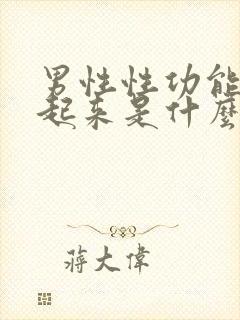 男性性功能
起来是什麽
蒋大偉